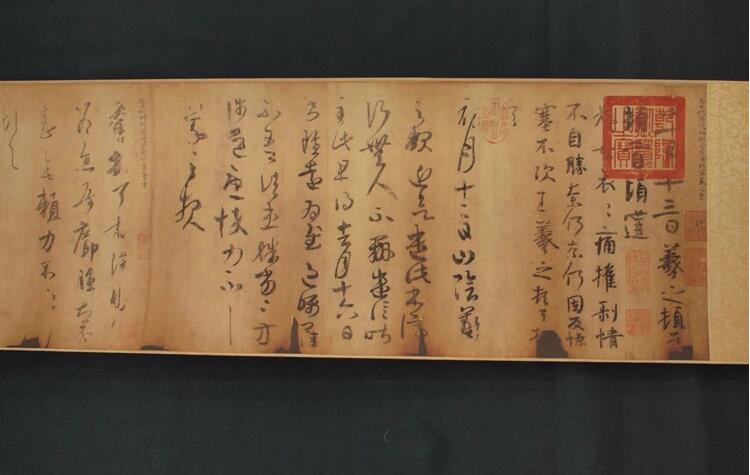 十三日羲之頓首
頓首頃遘
姨母哀哀痛摧剝情
不自勝奈何奈何因反慘
塞不次王羲之頓首頓
首
初月十二日山陰羲
之報近欲遣此書停
行無人不辦遣信昨
至此且得去月十六日
書雖遠爲慰過囑卿
佳不吾諸患殊劣殊劣方
涉道憂悴力不一一
羲之報
薈
爲念吾癤腫
甚無賴力不